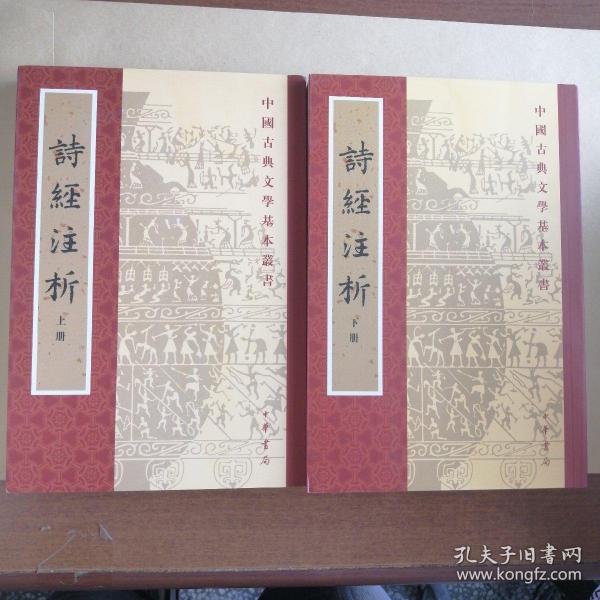 詩經注析
上册
中國古典文學基本叢書
中華書局
詩經注析
下册
中國古典文學基本叢書
中華書局
孔夫子旧书网
www.kongfz.com